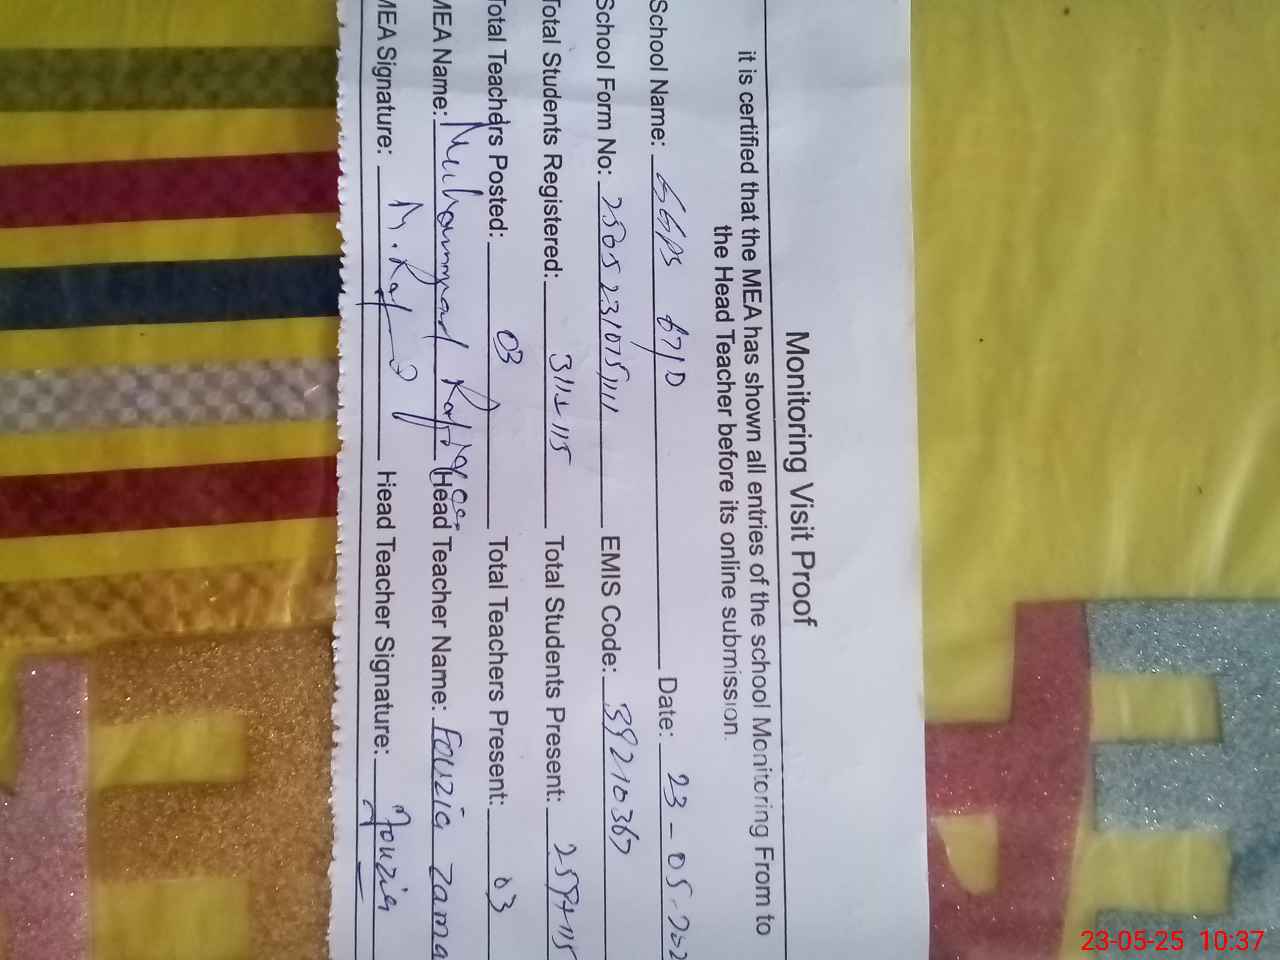 Monitoring Visit Proof
it is certified that the MEA has shown all entries of the school Monitoring From to
the Head Teacher before its online submission.
School Name: GGPS 671D Date: 23-05-202
School Form No: EMIS Code: 39210367
Total Students Registered: Total Students Present:
Total Teachers Posted: 03 Total Teachers Present: 03
MEA Name: Muhammad Head Teacher Name: Fouzia Zama
MEA Signature: Head Teacher Signature: Fouzia
23-05-25 10:37